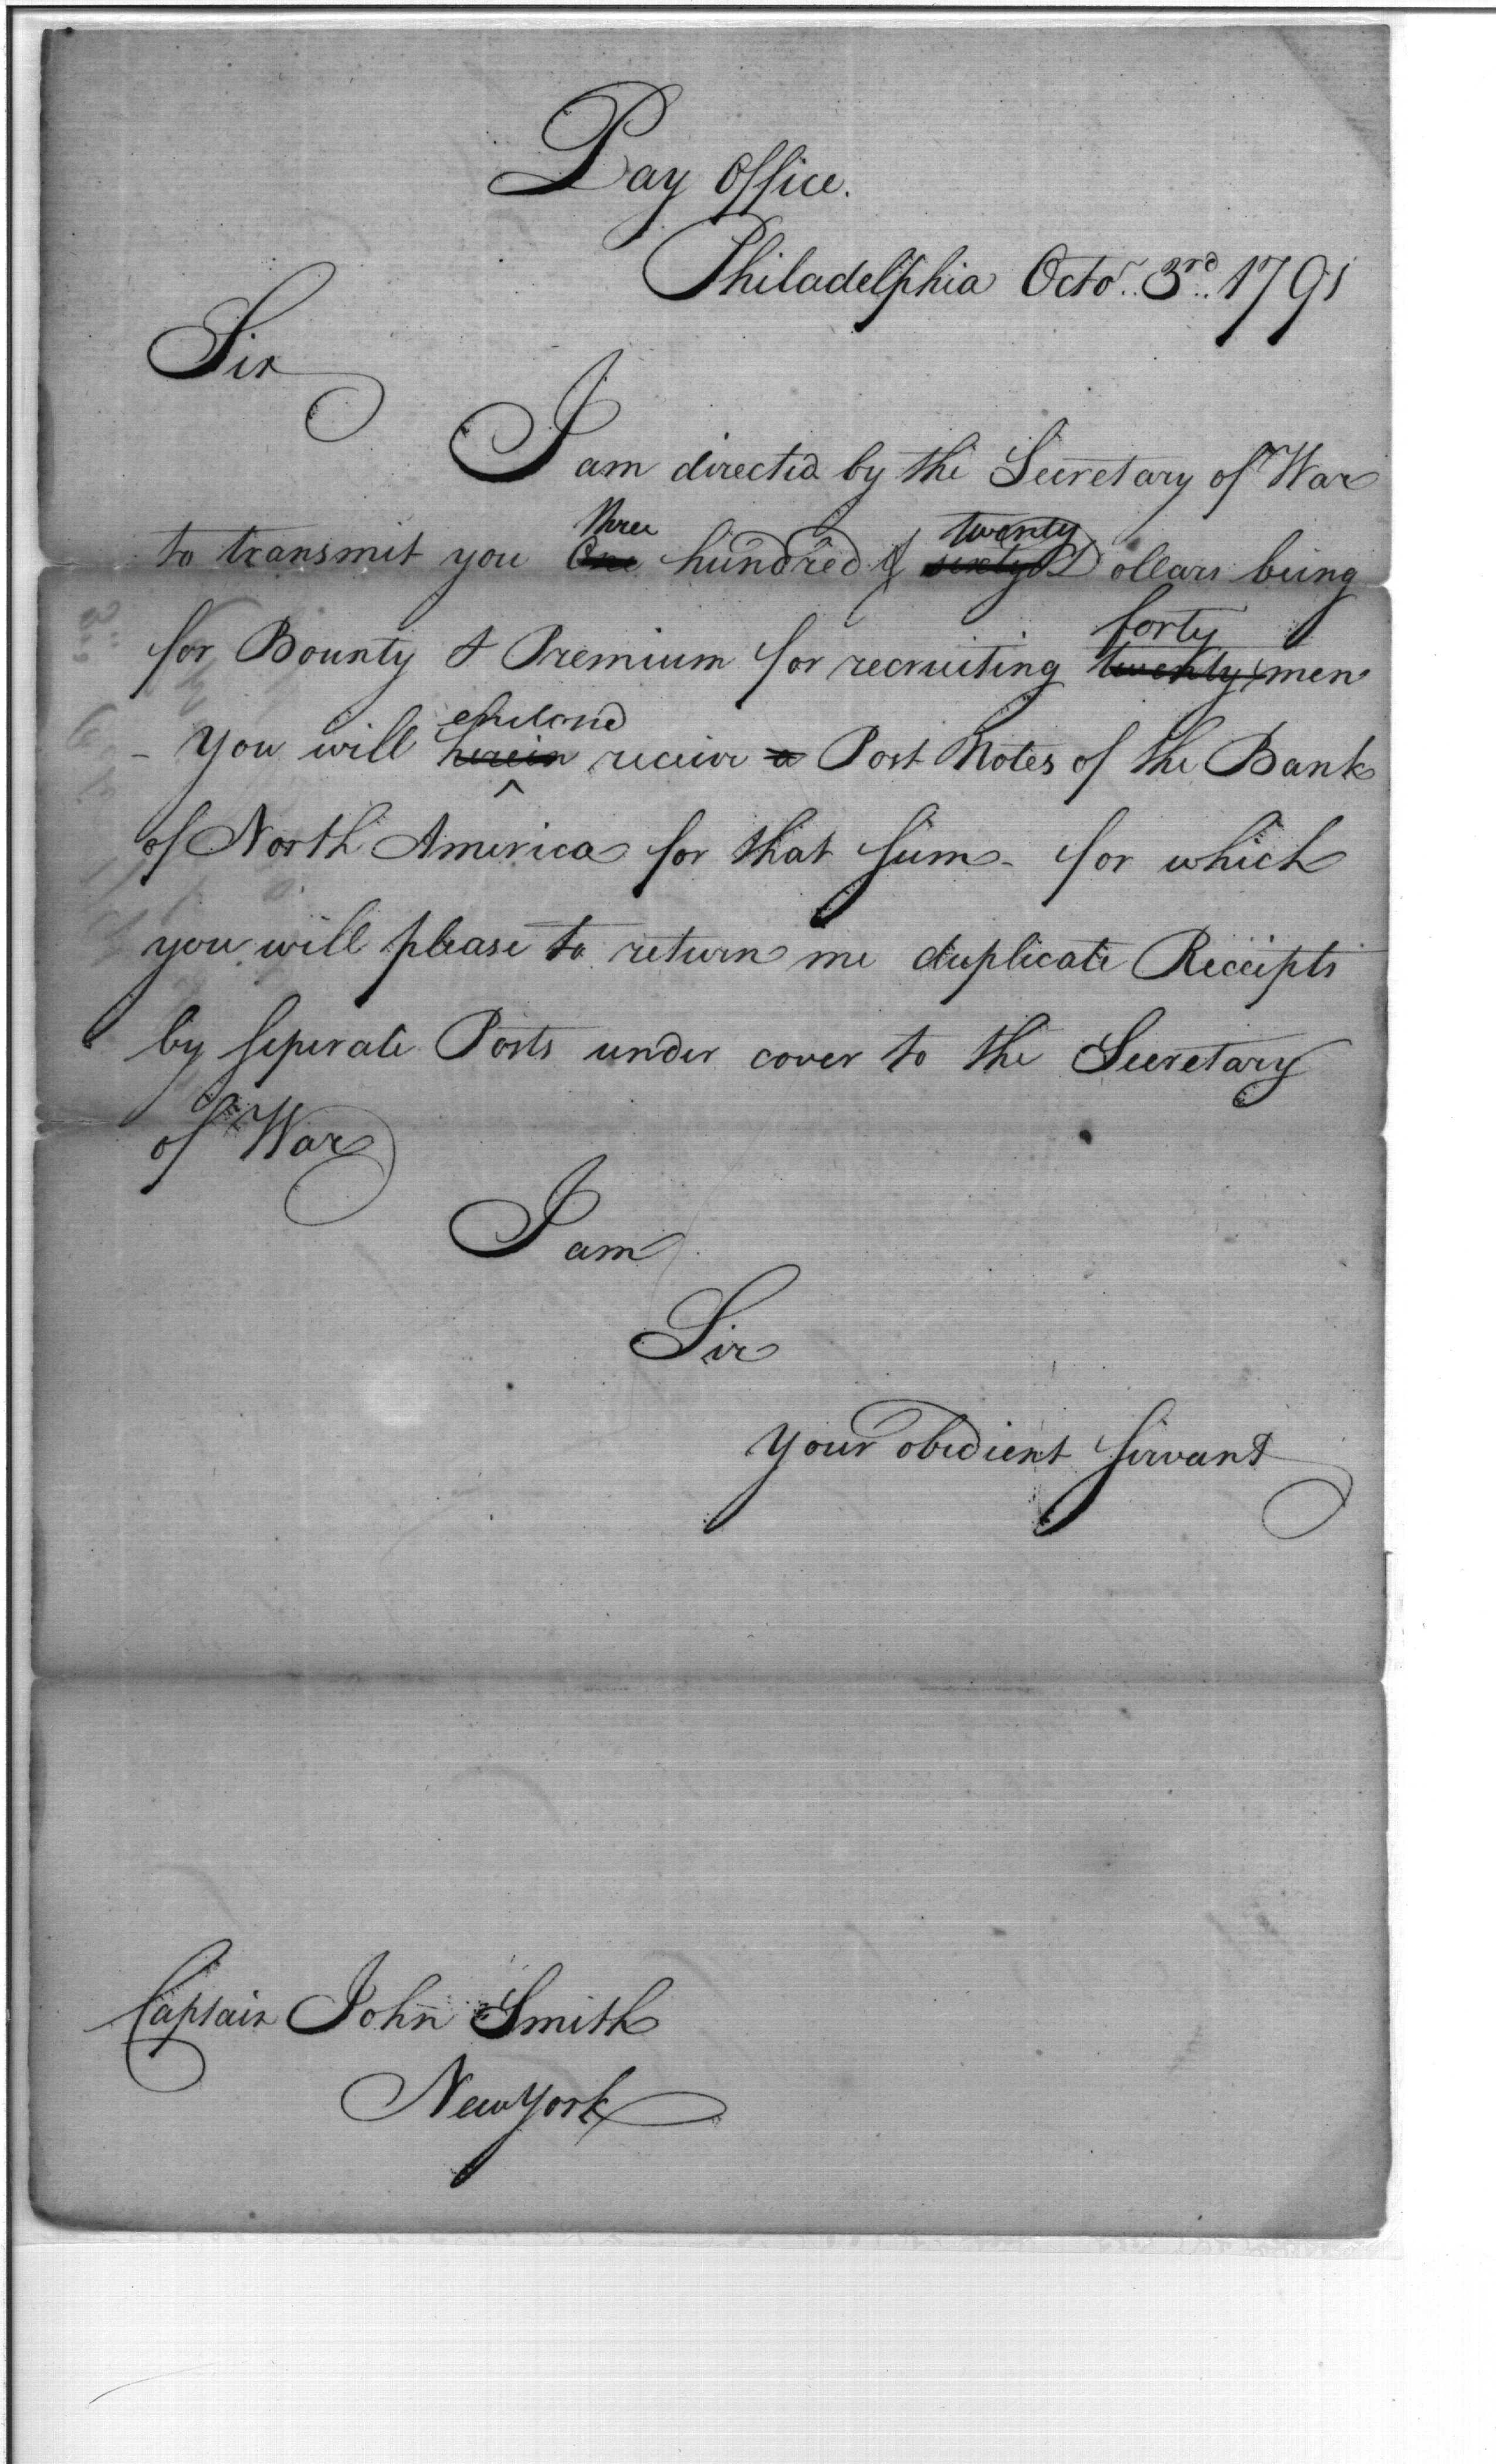 Pay Office.
Philadelphia Octo. 3rd. 1791
Sir
I am directed by the Secretary of War
Three twenty
to transmit you One hundred & sixty Dollars being
forty
for Bounty & Premium for recruiting twenty men
enclosed
- You will herein receive a Post Notes of the Bank
of North America for that sum - for which
you will please to return me duplicate Receipts
by seperate Posts under cover to the Secretary
of War
I am
Sir
Your obedient servant
Captain John Smith
New York